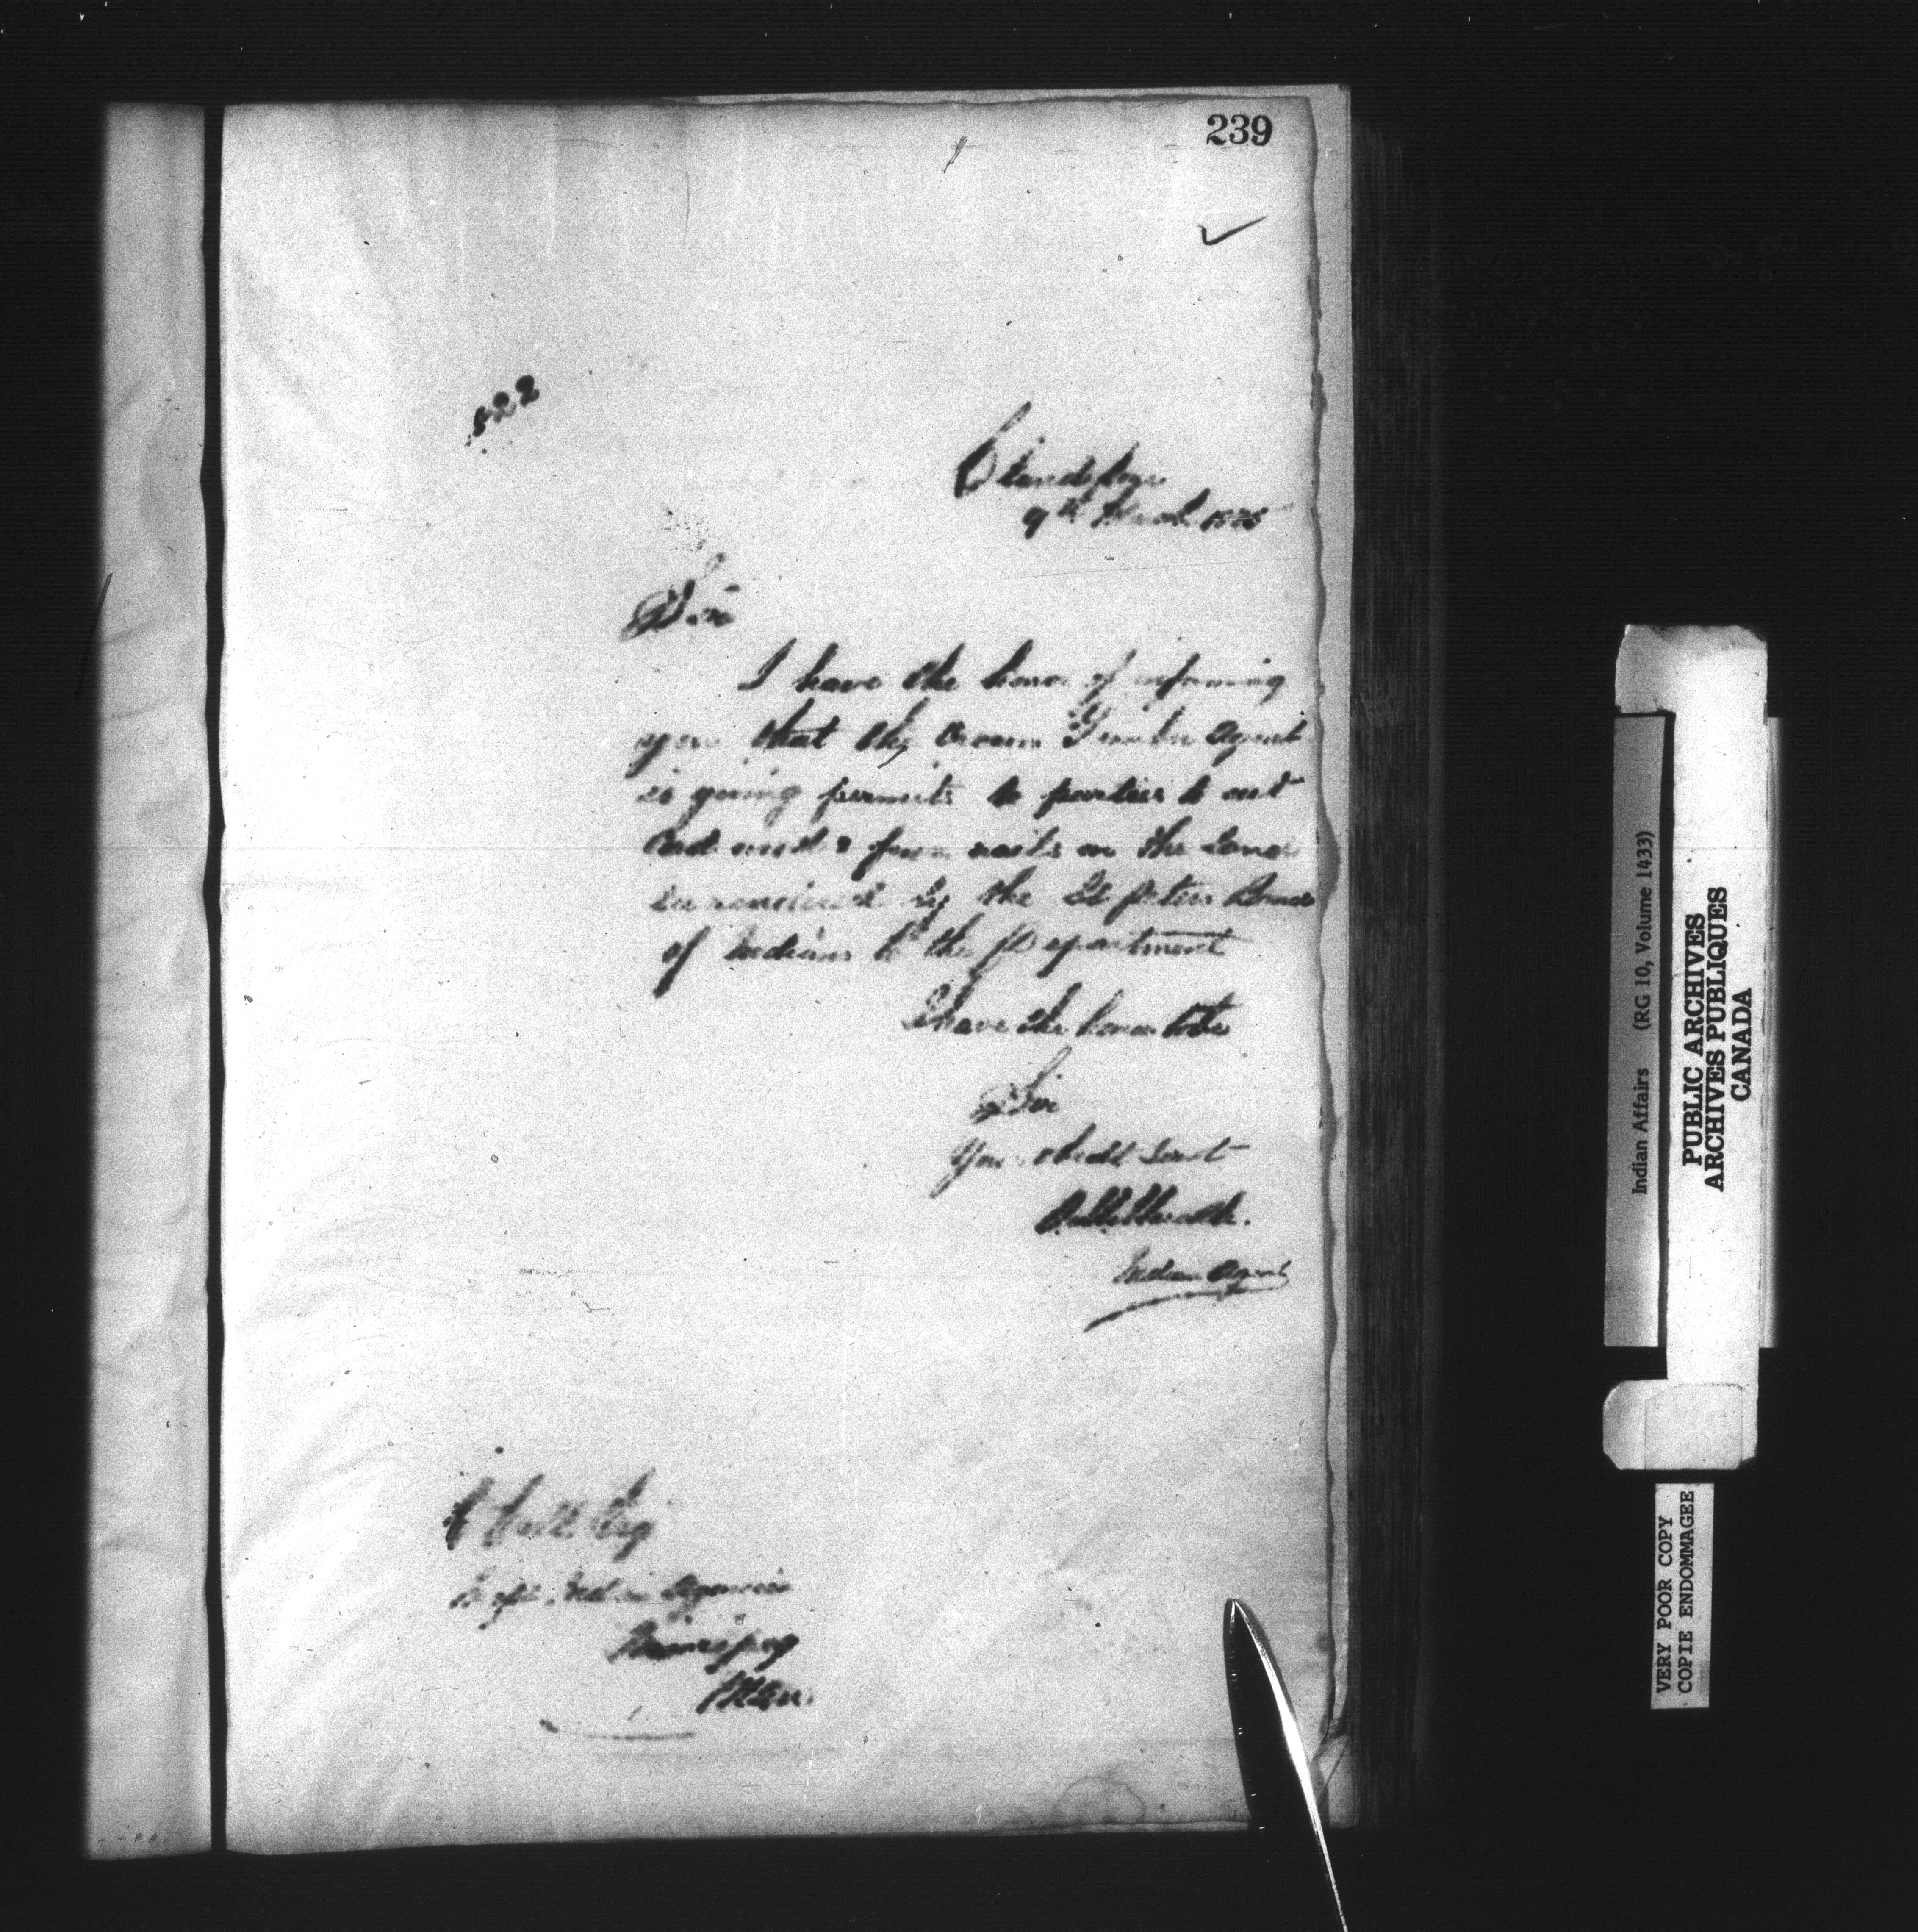 239
Clandeboye
9th March 188
Sir
I have the honor of informing
you that the Crown Timber Agent
is giving permits to parties to cut
cord wood & fence rails on the Land
surrendered by the St Peters Band
of Indians to the Department
I have the honor to be
Sir
Your obedt Servt
Indian Agent
E McColl Esq
Inspr Indian Agencies
Winnipeg
Man.
Indian Affairs (RG 10, Volume 1433)
PUBLIC ARCHIVES
ARCHIVES PUBLIQUES
CANADA
VERY POOR COPY
COPIE ENDOMMAGEE